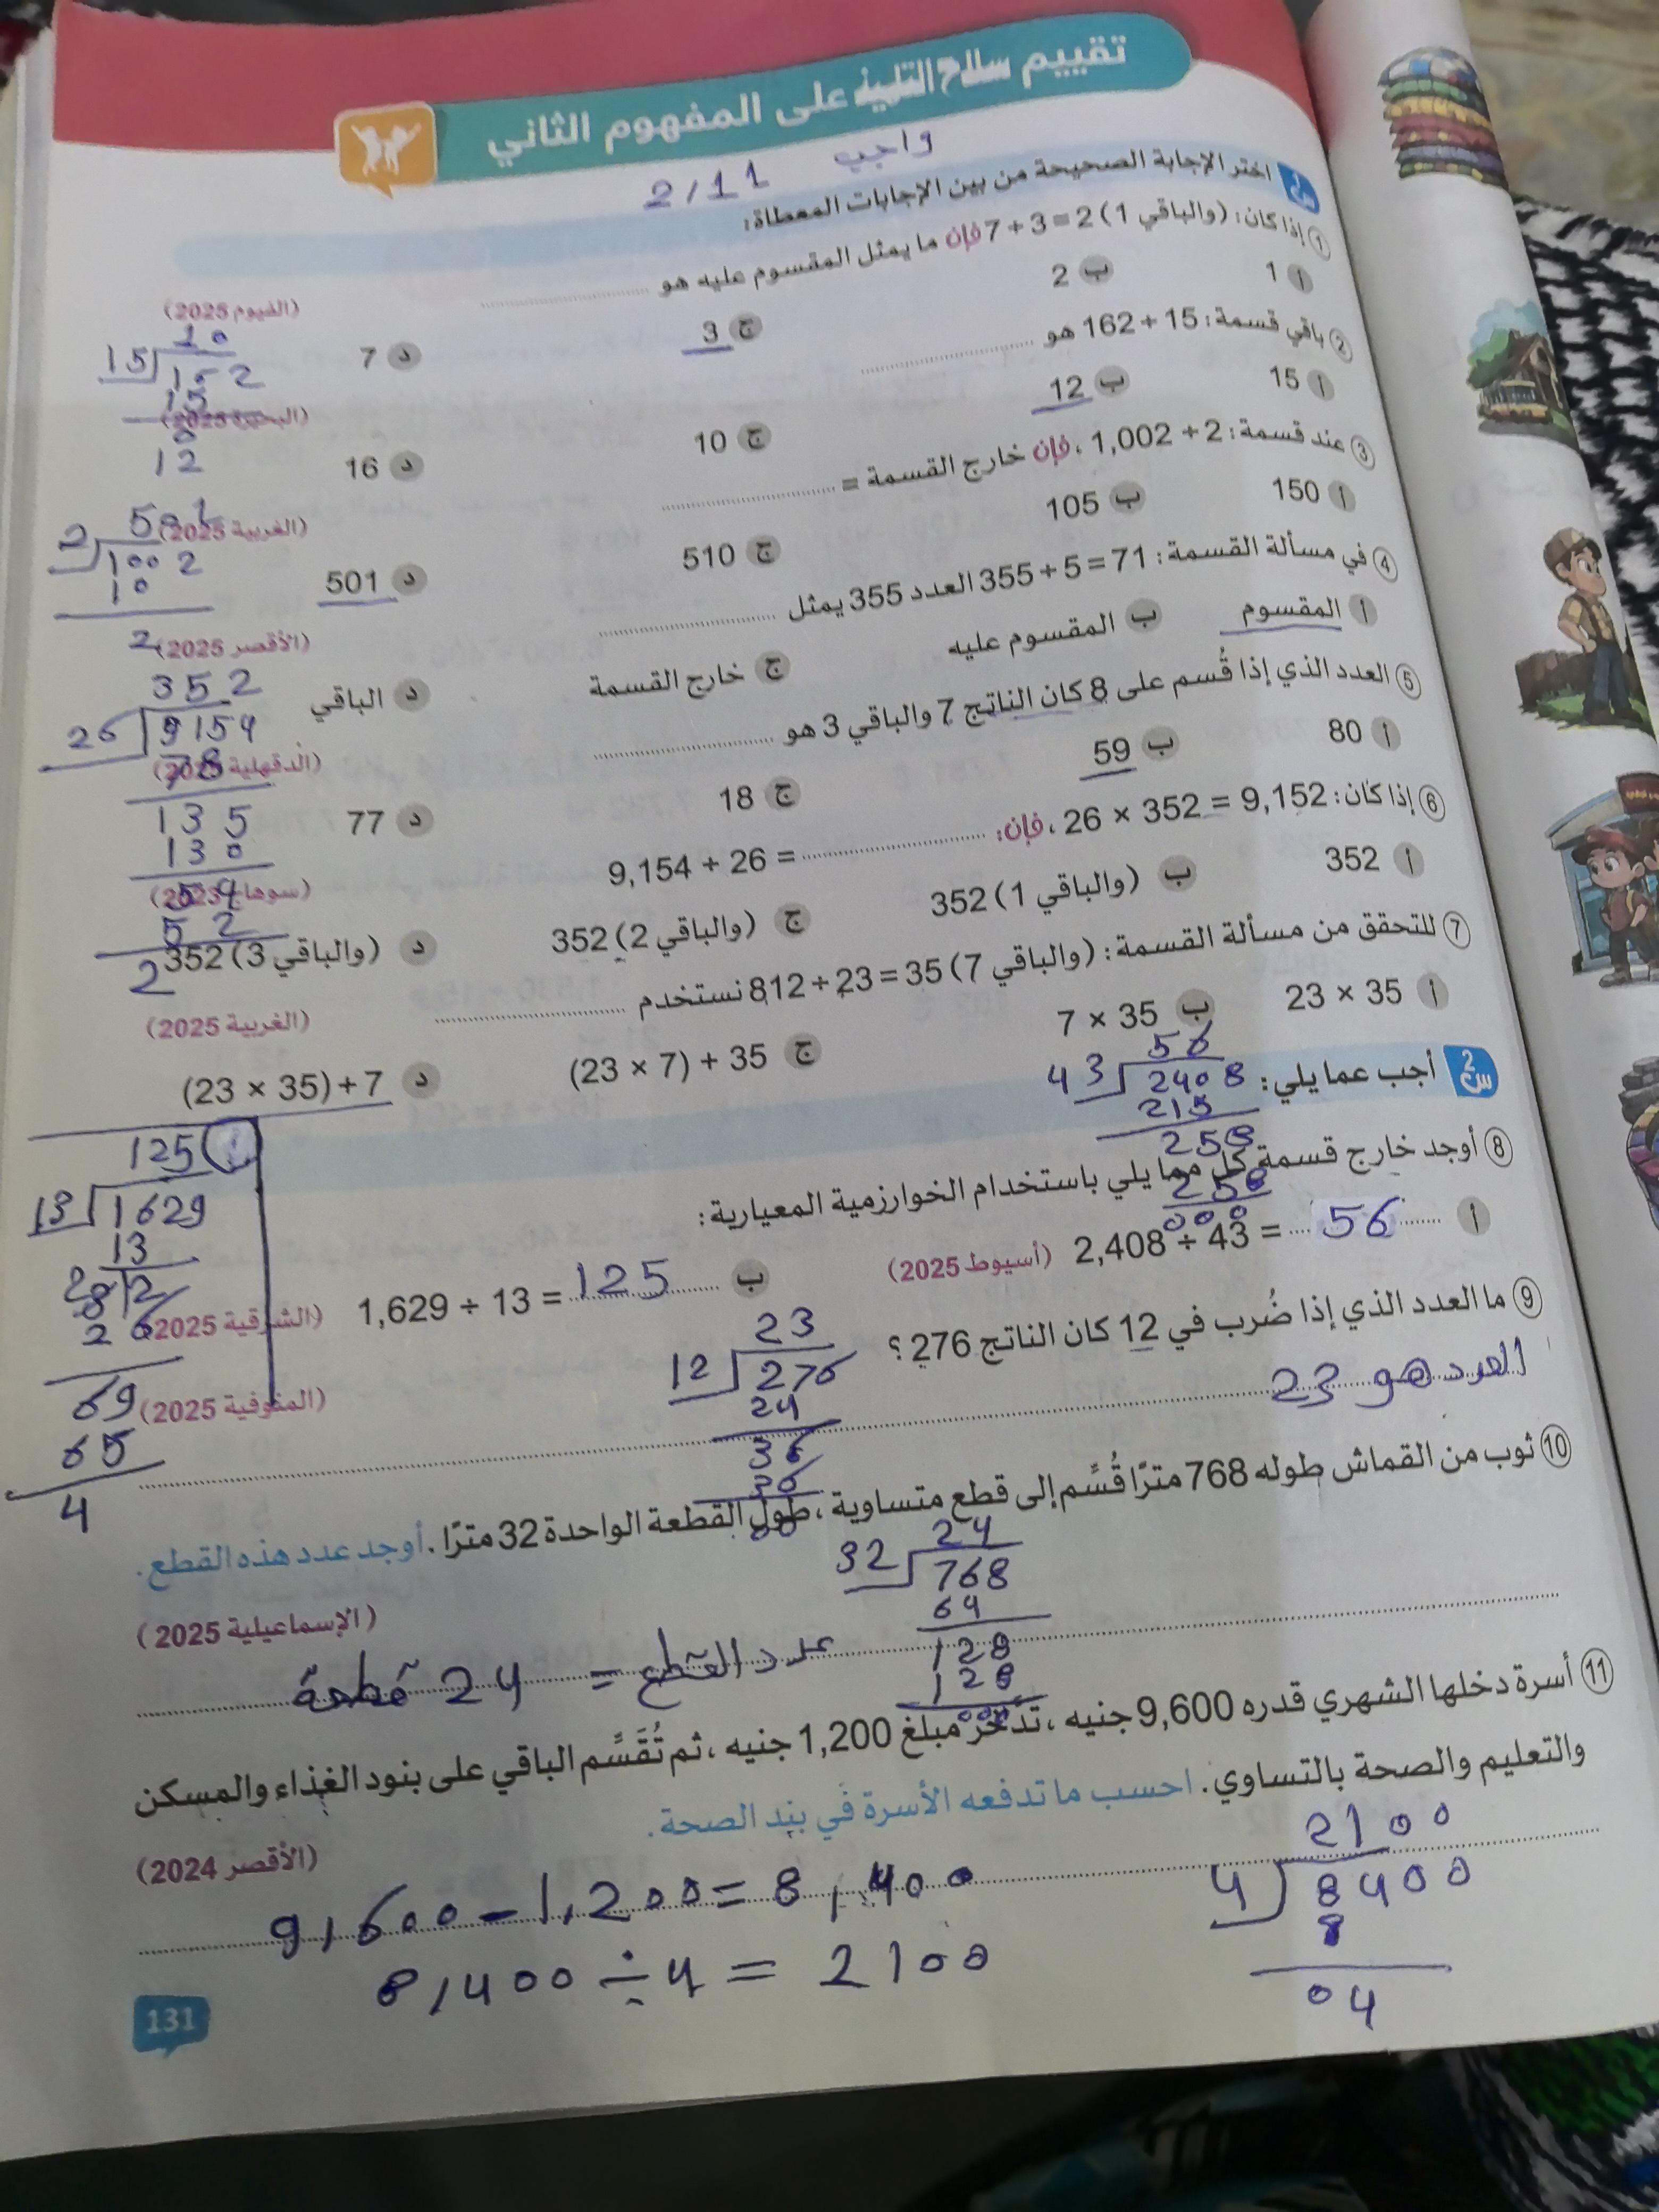 تقييم سلاح التلميذ على المفهوم الثاني
واجب 2/11
س1 اختر الإجابة الصحيحة من بين الإجابات المعطاة:
① إذا كان: 7 ÷ 3 = 2 (والباقي 1) فإن ما يمثل المقسوم عليه هو ............ (الفيوم 2025)
أ 1 ب 2 ج 3 د 7
② باقي قسمة: 15 ÷ 162 هو ............ (البحيرة 2025)
أ 15 ب 12 ج 10 د 16
③ عند قسمة: 2 ÷ 1,002 ، فإن خارج القسمة = ............ (الغربية 2025)
أ 150 ب 105 ج 510 د 501
④ في مسألة القسمة: 355 ÷ 5 = 71 العدد 355 يمثل ............ (الأقصر 2025)
أ المقسوم ب المقسوم عليه ج خارج القسمة د الباقي
⑤ العدد الذي إذا قُسم على 8 كان الناتج 7 والباقي 3 هو ............ (الدقهلية 2025)
أ 80 ب 59 ج 18 د 77
⑥ إذا كان: 26 × 352 = 9,152 ، فإن: ............ = 9,154 ÷ 26 (سوهاج 2023)
أ 352 ب 352 (والباقي 1) ج 352 (والباقي 2) د 352 (والباقي 3)
⑦ للتحقق من مسألة القسمة: 812 ÷ 23 = 35 (والباقي 7) نستخدم ............ (الغربية 2025)
أ 23 × 35 ب 7 × 35 ج (23 × 7) + 35 د (23 × 35) + 7
س2 أجب عما يلي:
⑧ أوجد خارج قسمة كل مما يلي باستخدام الخوارزمية المعيارية:
أ 2,408 ÷ 43 = 56 (أسيوط 2025) ب 1,629 ÷ 13 = 125 (الشرقية 2025)
⑨ ما العدد الذي إذا ضُرب في 12 كان الناتج 276 ؟ (المنوفية 2025)
العدد هو 23
⑩ ثوب من القماش طوله 768 مترًا قُسِّم إلى قطع متساوية، طول القطعة الواحدة 32 مترًا. أوجد عدد هذه القطع.
(الإسماعيلية 2025)
عدد القطع = 24 قطعة
⑪ أسرة دخلها الشهري قدره 9,600 جنيه، تدَّخر مبلغ 1,200 جنيه، ثم تُقَسِّم الباقي على بنود الغذاء والمسكن
والتعليم والصحة بالتساوي. احسب ما تدفعه الأسرة في بند الصحة. (الأقصر 2024)
9,600 - 1,200 = 8,400
8,400 ÷ 4 = 2100
15 152
15
12
2 1002
10
2
352
26 9154
78
135
130
54
52
2
56
43 2408
215
258
258
000
125
13 1629
13
26
69
65
4
23
12 276
24
36
36
00
24
32 768
64
128
128
000
2100
4 8400
8
04
131